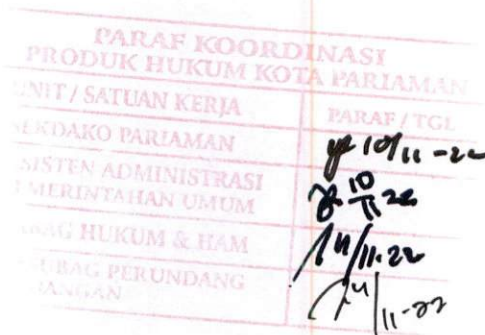 PARAF KOORDINASI
PRODUK HUKUM KOTA PARIAMAN
UNIT / SATUAN KERJA PARAF / TGL
SEKDAKO PARIAMAN 10/11-22
SISTEN ADMINISTRASI
MERINTAHAN UMUM 10/11 22
BAG HUKUM & HAM 11/11.22
UBAG PERUNDANG
ANGAN 11-22